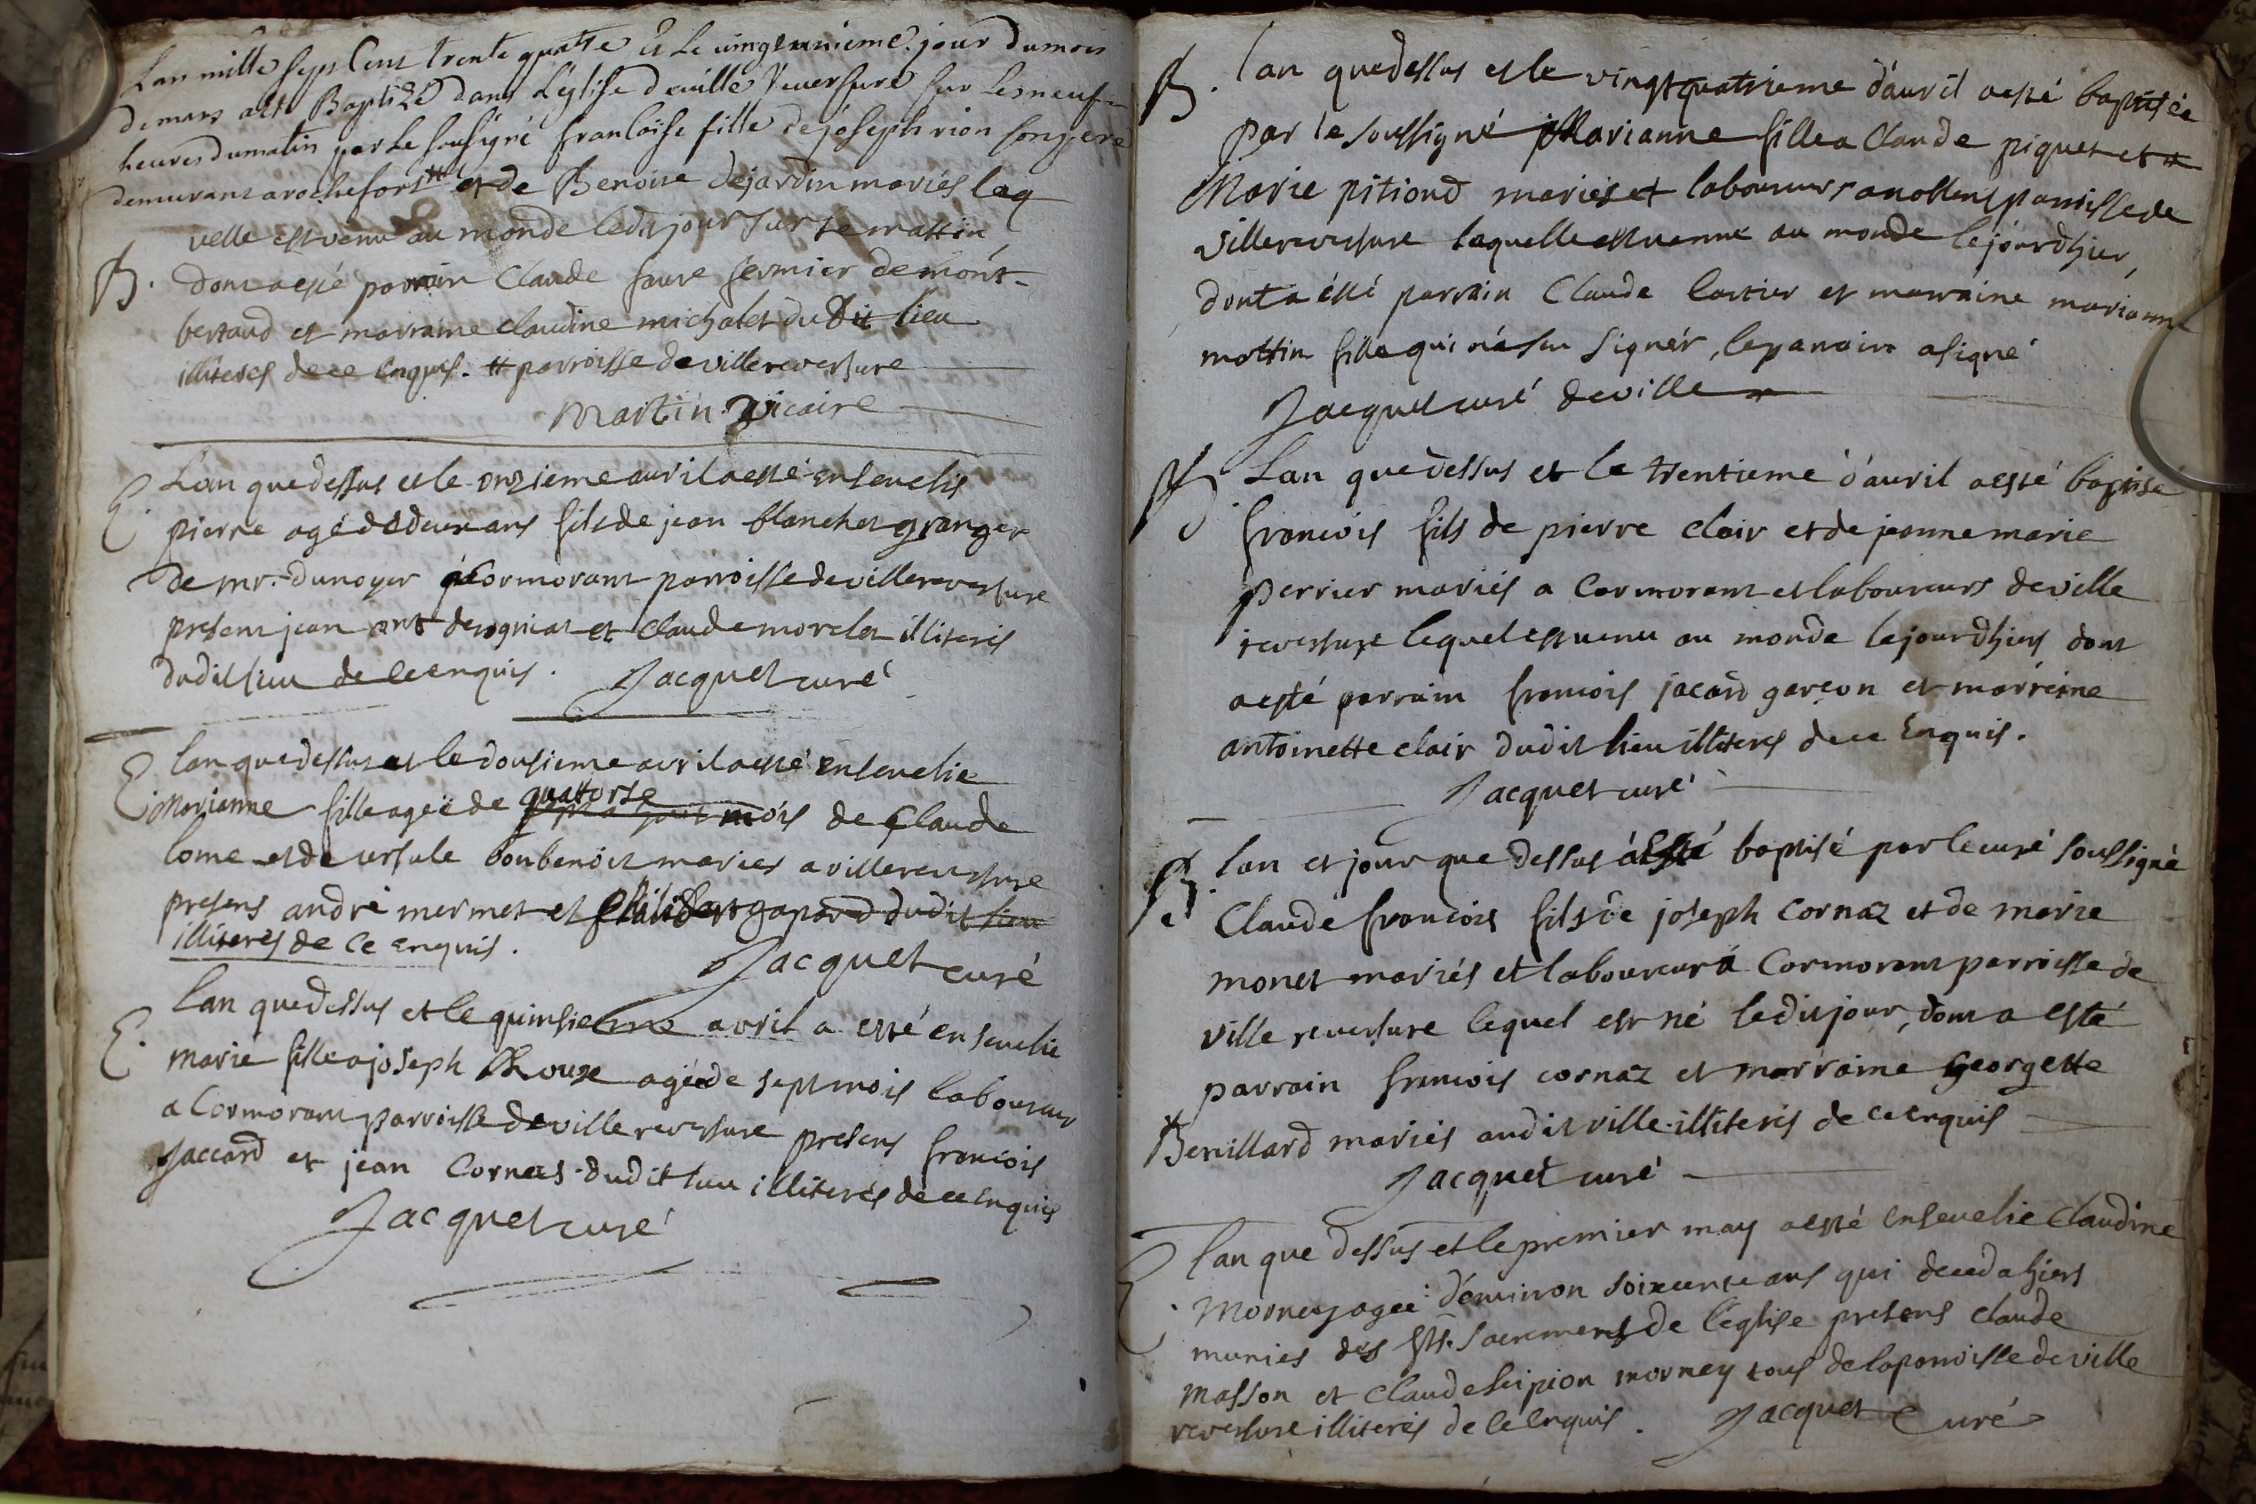 Lan mille sept Cent trente quatre et Le vingt unieme jour du mois
de mars a esté Baptizé dans L'eglise de ville Reversure sur Les neuf
heures du matin par Le sousigné francoise fille de joseph rion son pere
demeurant a rochefort # et de Benoite dejardin mariés laq
uelle est venu au monde ledit jour sur le mattin
B. dont a esté parrain Claude faure fermier de mont-
bertaud et marraine claudine michalet du Dit lieu
illiterés de ce Enquis. # parroisse de villereversure
Martin Vicaire
E. Lan que dessus et le onzieme avril a esté ensevelis
pierre agé de deux ans fils de jean blanchet granger
de mr. dunoyer a Cormorant parroisse de villereversure
present jean ant derognat et Claude morelet illiterés
dudit lieu de ce enquis. Jacquet curé
E. lan que dessus et le dousieme avril a esté ensevelie
Marianne fille ageé de quattorse mois de Claude
lome et de ursule bonbenoit mariés a villereversure
presens andré mermet et philibert gapard dudit lieu
illiterés de Ce enquis.
Jacquet curé
E. lan que dessus et le quinsieme avril a esté ensevelie
marie fille a joseph Rouse ageé de sept mois laboureur
a Cormorant parroisse de villereversure presens francois
Jaccard et jean Cornas dudit lieu illiterés de ce enquis
Jacquet curé
B. lan que dessus et le vingt quatrieme d'avril a esté baptiseé
par le soussigné Marianne fille a Claude piquet et
Marie pitioud mariés et laboureurs a noblens parroisse de
villereversure laquelle est venue au monde le jourdhier,
dont a esté parrain Claude Cartier et marraine marianne
mottin fille qui n'a sceu signér, le parrain a signé
Jacquet curé de ville
B. Lan que dessus et le trentieme d'avril a esté baptisé
francois fils de pierre clair et de jeanne marie
perrier mariés a Cormorant et laboureurs de ville
reversure lequel est venu au monde le jourdhiers dont
a esté parrain francois jacard garcon et marreine
antoinette clair dudit lieu illiterés de ce Enquis.
Jacquet curé
B. lan et jour que dessus a esté baptisé par le curé soussigné
Claude francois fils de joseph Cornaz et de marie
monet mariés et laboureur a Cormorant parroisse de
ville reversure lequel est né ledit jour, dont a esté
parrain francois cornaz et marraine Georgette
Benillard mariés audit ville illiterés de ce enquis
Jacquet curé
E. lan que dessus et le premier may a esté ensevelie Claudine
Morney ageé d'environ soixente ans qui deceda hiers
munies des sts. sacrements de l'eglise presens Claude
Masson et Claude scipion morney tous de la parroisse de ville
reversure illiterés de ce enquis. Jacquet Curé